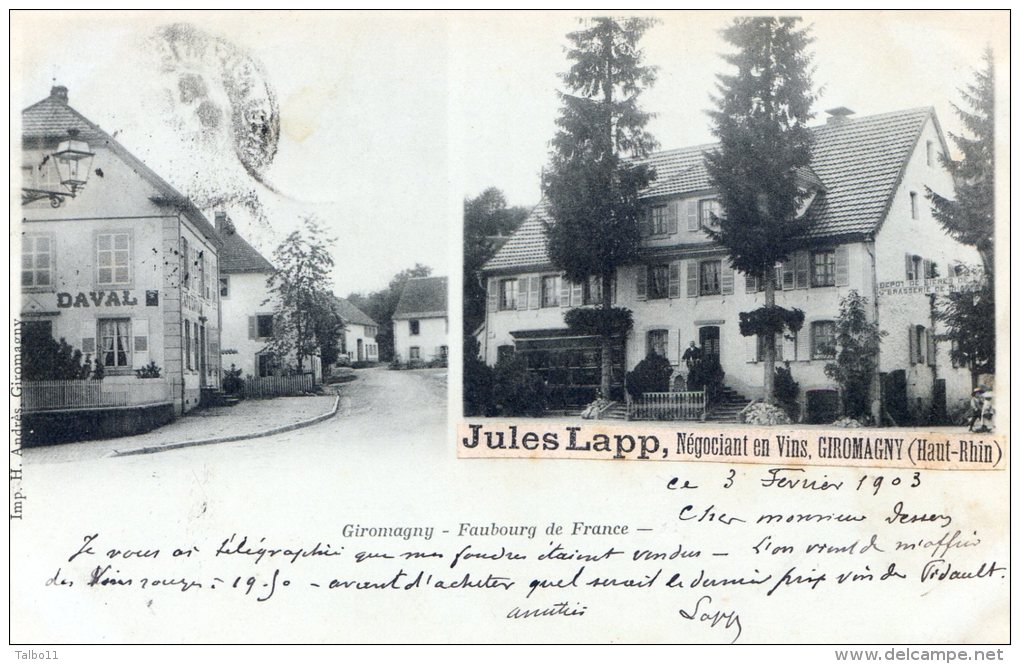 DAVAL
DEPOT DE BIÈRES
BRASSERIE DE
Imp. H. Andrès, Giromagny
Jules Lapp, Négociant en Vins, GIROMAGNY (Haut-Rhin)
ce 3 Fevrier 1903
Giromagny - Faubourg de France —
Cher monsieur
Je vous ai télégraphié que mes foudres étaient vendus — L'on vient de m'offrir
des Vins rouges à 19.50 - avant d'acheter quel serait le dernier prix vin de
amitiés Lapp
Talbo11
www.delcampe.net